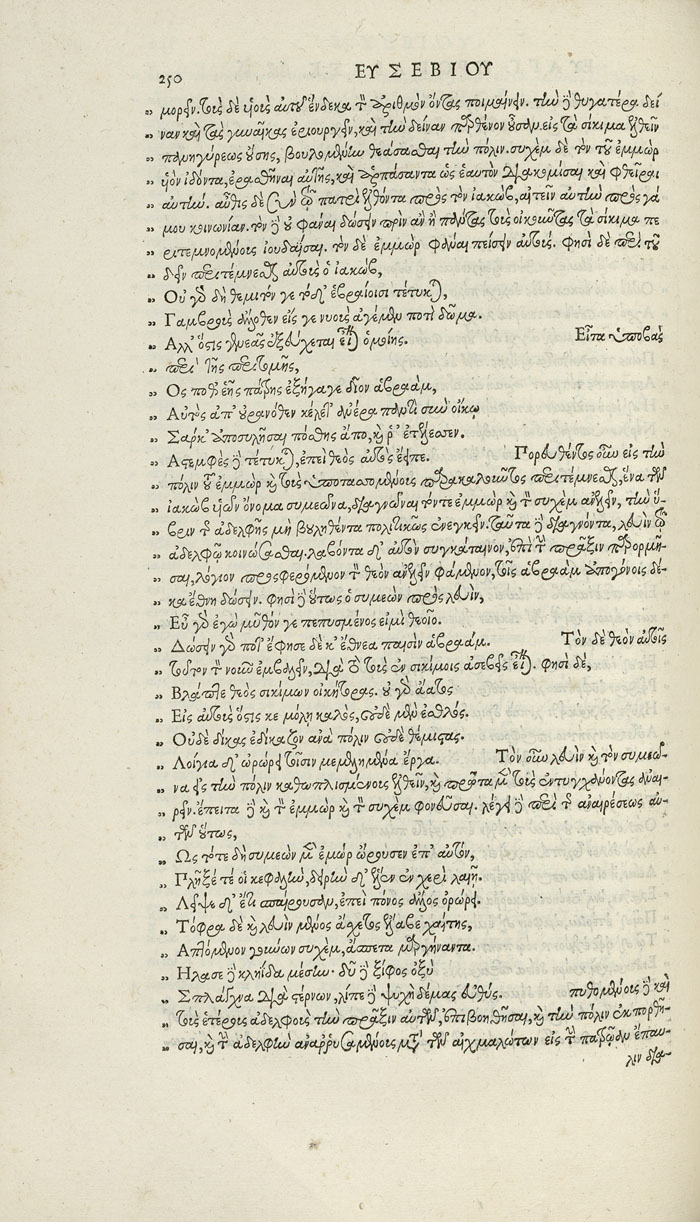 250 ΕΥΣΕΒΙΟΥ
„ μορεῖν. τοὺς δὲ υἱοὺς αὐτοῦ ἕνδεκα τὸν ἀριθμὸν ὄντας ποιμαίνειν. τὴν δὲ θυγατέρα δεί
„ ναν καὶ τὰς γυναῖκας ἐριουργεῖν, καὶ τὴν δείναν παρθένον οὖσαν εἰς τὰ σίκιμα ἐλθεῖν
„ πανηγύρεως οὔσης, βουλομένην θεάσασθαι τὴν πόλιν. συχὲμ δὲ τὸν τοῦ ἐμμὼρ
„ υἱὸν ἰδόντα, ἐρασθῆναι αὐτῆς, καὶ ἁρπάσαντα ὡς ἑαυτὸν διακομίσαι καὶ φθεῖραι
„ αὐτήν. αὖθις δὲ σὺν τῷ πατρὶ ἐλθόντα πρὸς τὸν ἰακὼβ, αἰτεῖν αὐτὴν πρὸς γά
„ μου κοινωνίαν. τὸν δὲ οὐ φάναι δώσειν πρὶν ἂν ἢ πάντας τοὺς οἰκοῦντας τὰ σίκιμα πε
„ ριτεμνομένους ἰουδαΐσαι. τὸν δὲ ἐμμὼρ φάναι πείσειν αὐτούς. φησὶ δὲ περὶ τοῦ
„ δεῖν περιτέμνεσθαι αὐτοὺς ὁ ἰακὼβ,
„ Οὐ γὰρ δὴ θεμιτόν γε τόδ' ἑβραίοισι τέτυκται,
„ Γαμβροὺς ἄλλοθεν εἰς γε νυοὺς ἀγέμεν ποτὶ δῶμα.
„ Ἀλλ' ὅστις γενεᾶς ἐξεύχεται εἶναι ὁμοίης. Εἶτα ὑποβὰς
„ περὶ τῆς περιτομῆς,
„ Ὅς ποτ' ἑῆς πάτρης ἐξήγαγε δῖον ἀβραὰμ,
„ Αὐτὸς ἀπ' οὐρανόθεν κέλετ' ἀνέρα παντὶ σὺν οἴκῳ
„ Σάρκ' ἀποσυλῆσαι πόσθης ἄπο, καὶ ῥ' ἐτέλεσσεν.
„ Ἀστεμφὲς δὲ τέτυκται, ἐπεὶ θεὸς αὐτὸς ἔειπε. Πορευθέντος οὖν εἰς τὴν
„ πόλιν τοῦ ἐμμὼρ καὶ τοὺς ὑποτασσομένους παρακαλοῦντος περιτέμνεσθαι, ἕνα τῶν
„ ἰακὼβ υἱῶν ὄνομα συμεῶνα, διαγνῶναι τόν τε ἐμμὼρ καὶ τὸν συχὲμ ἀνελεῖν, τὴν ὕ-
„ βριν τῆς ἀδελφῆς μὴ βουληθέντα πολιτικῶς ἐνεγκεῖν. ταῦτα δὲ διαγνόντα, λευὶν τῷ
„ ἀδελφῷ κοινώσασθαι. λαβόντα δ' αὐτὸν συγκάταινον, ἐπὶ τὴν πρᾶξιν παρορμῆ-
„ σαι, λόγιον προσφερόμενον τὸν θεὸν ἀνελεῖν φάμενον, τοῖς ἀβραὰμ ἀπογόνοις δέ-
„ κα ἔθνη δώσειν. φησὶ δὲ οὕτως ὁ συμεὼν πρὸς λευὶν,
„ Εὖ γὰρ ἐγὼ μῦθόν γε πεπυσμένος εἰμὶ θεοῖο.
„ Δώσειν γάρ ποτ' ἔφησε δέκ' ἔθνεα παισὶν ἀβραάμ. Τὸν δὲ θεὸν αὐτοῖς
„ τοῦτον τὸν νοῦν ἐμβαλεῖν, διὰ τὸ τοὺς ἐν σικίμοις ἀσεβεῖς εἶναι. φησὶ δὲ,
„ Βλάπτε θεὸς σικίμων οἰκήτορας. οὐ γὰρ ἄατος
„ Εἰς αὐτοὺς ὅστις κε μόλῃ καλὸς, οὐδὲ μὲν ἐσθλός.
„ Οὐδὲ δίκας ἐδίκαζον ἀνὰ πόλιν οὐδὲ θέμιστας.
„ Λοίγια δ' ὠρώρει τοῖσιν μεμελημένα ἔργα. Τὸν οὖν λευὶν καὶ τὸν συμεῶ-
„ να εἰς τὴν πόλιν καθωπλισμένους ἐλθεῖν, καὶ πρῶτα μὲν τοὺς ἐντυγχάνοντας ἀναι-
„ ρεῖν. ἔπειτα δὲ καὶ τὸν ἐμμὼρ καὶ τὸν συχὲμ φονεῦσαι. λέγει δὲ περὶ τῆς ἀναιρέσεως αὐ-
„ τῶν οὕτως,
„ Ὣς τότε δὴ συμεὼν μὲν ἐμὼρ ὤρουσεν ἐπ' αὐτὸν,
„ Πλῆξέ τέ οἱ κεφαλὴν, δειρὴν δ' ἕλεν ἐν χερὶ λαιῇ.
„ Λεῖψε δ' ἔτι σπαίρουσαν, ἐπεὶ πόνος ἄλλος ὀρώρει.
„ Τόφρα δὲ καὶ λευὶν μένος ἄσχετος ἔλλαβε χαίτης,
„ Ἁπτόμενον γούνων συχὲμ, ἄσπετα μαργήναντα.
„ Ἤλασε δὲ κληῖδα μέσην· δῦ δὲ ξίφος ὀξὺ
„ Σπλάγχνα διὰ στέρνων, λίπε δὲ ψυχὴ δέμας εὐθύς. πυθομένους δὲ καὶ
„ τοὺς ἑτέρους ἀδελφοὺς τὴν πρᾶξιν αὐτῶν, ἐπιβοηθῆσαι, καὶ τὴν πόλιν ἐκπορθῆ-
„ σαι, καὶ τὴν ἀδελφὴν ἀναρρυσαμένους μετὰ τῶν αἰχμαλώτων εἰς τὴν πατρῴαν ἔπαυ-
λιν δια-